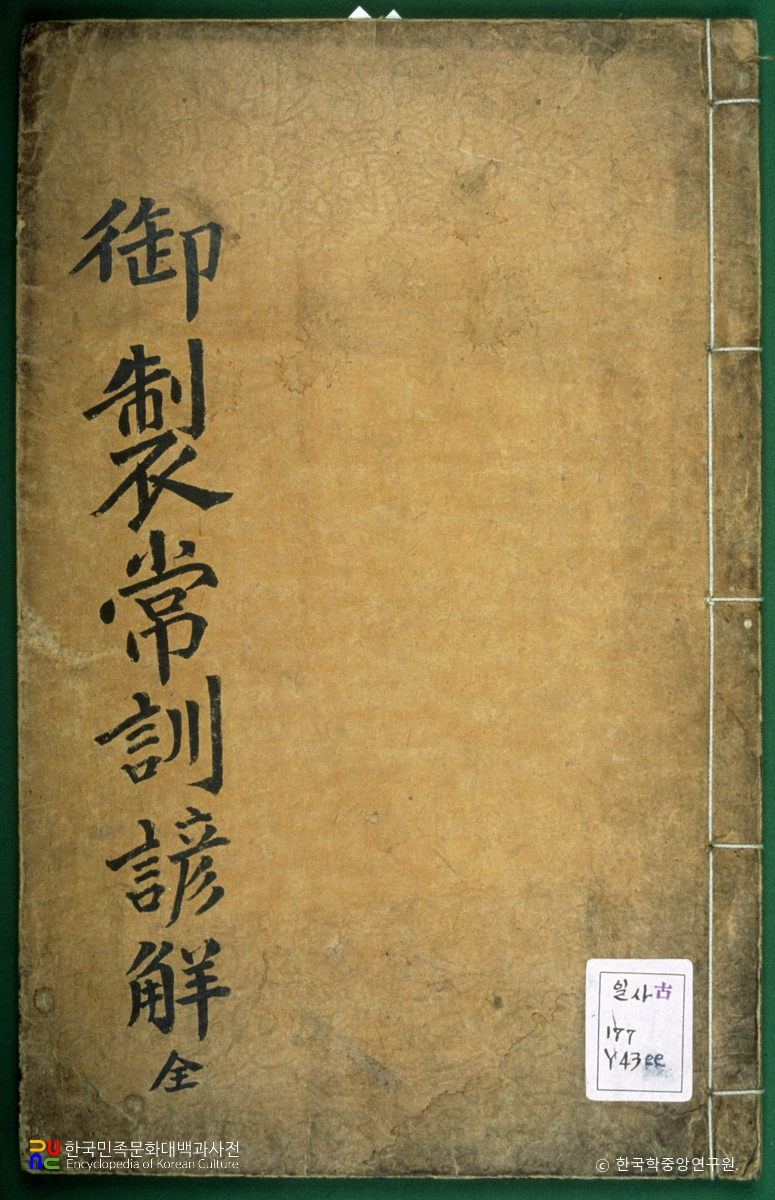 御製常訓諺觧 全
일사古
177
Y43ee
한국민족문화대백과사전
Encyclopedia of Korean Culture
© 한국학중앙연구원